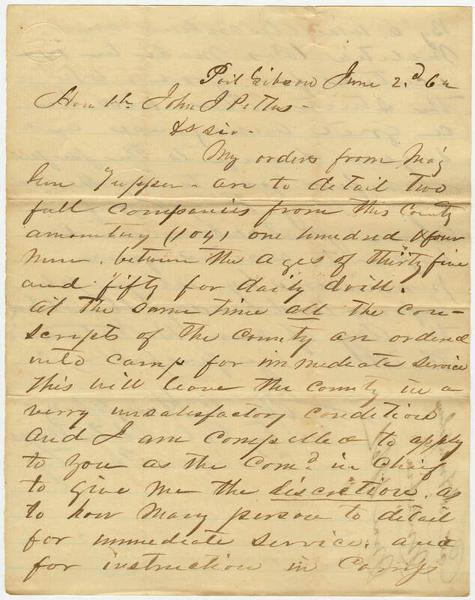 Port Gibson June 2d 62
Honble John J Pettus -
Dr sir -
My orders from Maj
Gen Tupper - are to detail two
full companies from this County
amounting (104) one hundred & four
men. between the ages of thirty five
and fifty for daily drill.
At the same time all the con-
scripts of the county are ordered
into camp for immediate service
this will leave the county in a
verry unsatisfactory condition
and I am compelled to apply
to you as the Comd in chief
to give me the discretion, as
to how many person to detail
for immediate service. and
for instruction in